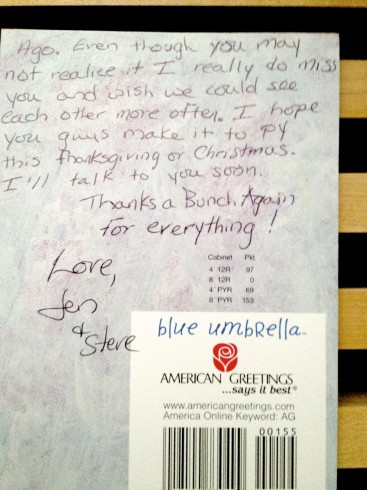 Ago. Even though you may
not realize it I really do miss
you and wish we could see
each other more often. I hope
you guys make it to PY
this Thanksgiving or Christmas.
I'll talk to you soon.
Thanks a Bunch Again
For everything!
Love,
Jen
& Steve
Cabinet Pkt
4 12R 97
8 12R 0
4 PYR 69
8 PYR 153
blue umbrella™
AMERICAN GREETINGS
...says it best®
www.americangreetings.com
America Online Keyword: AG
00155